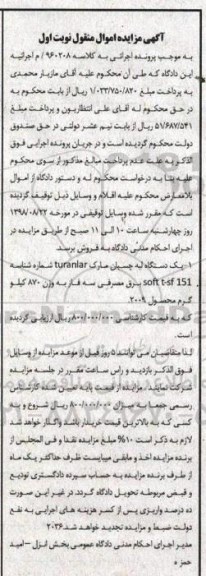 آگهی مزایده اموال منقول نوبت اول
به موجب پرونده اجرائی به کلاسه ۹۶۰۲۰۸ / م اجرائیه
این دادگاه که طی آن محکوم علیه آقای مازیار محمدی
به پرداخت مبلغ ۱/۰۳۳/۷۵۰/۸۲۰ ریال از بابت محکوم به
در حق محکوم له آقای علی انتظاریون و پرداخت مبلغ
۵۱/۶۸۷/۵۴۱ ریال از بابت نیم عشر دولتی در حق صندوق
دولت محکوم گردیده است و در جریان پرونده اجرایی فوق
الذکر به علت عدم پرداخت مبالغ مذکور از سوی محکوم
علیه بنا به درخواست محکوم له و دستور دادگاه از اموال
بلامعارض محکوم علیه اقلام و وسایل ذیل توقیف گردیده
است که مقرر شده وسایل توقیفی در مورخه ۱۳۹۸/۰۸/۲۲
روز چهارشنبه ساعت ۱۰ الی ۱۱ صبح از طریق مزایده در
اجرای احکام مدنی دادگاه به فروش برسند
۱- یک دستگاه لبه چسبان مارک turanlar شماره شناسه
soft t-sf 151 برق مصرفی سه فاز به وزن ۸۷۰ کیلو
گرم محصول ۲۰۰۹
که به قیمت کارشناسی ۸۰۰/۰۰۰/۰۰۰ ریال ارزیابی گردیده
است
لذا متقاضیان می توانند ۵ روز قبل از موعد مزایده از وسایل
فوق الذکر بازدید و راس ساعت مقرر در جلسه مزایده
شرکت نمایند . مزایده از قیمت پایه تعیین شده کارشناس
رسمی جمعا به میزان ۸۰۰/۰۰۰/۰۰۰ ریال شروع و به
کسی که به بالاترین قیمت خریدار باشد واگذار خواهد شد
لازم به ذکر است ۱۰% مبلغ مزایده نقدا و فی المجلس از
برنده مزایده اخذ و مابقی میبایست ظرف حداکثر یک ماه
از طرف برنده مزایده به حساب سپرده دادگستری تودیع
و قبض مربوطه تحویل دادگاه گردد. در غیر این صورت
ده درصد واریزی پس از کسر هزینه های اجرایی به نفع
دولت ضبط و مزایده تجدید خواهد شد ۲۰۳۶
مدیر اجرای احکام مدنی دادگاه عمومی بخش انزل - امید
حمزه